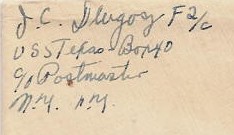 J.C. Dlugosz F2/c
USS Texas - Box 40
c/o Postmaster
N.Y. N.Y.